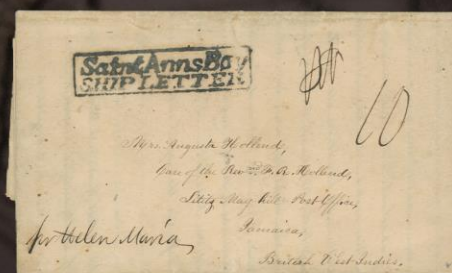 Saint Anns Bay
SHIP LETTER
10
Mrs. Augusta Holland,
Care of the Revd. F. R. Holland,
Lititz May hill Post Office,
Jamaica,
British West Indies.
pr Helen Maria